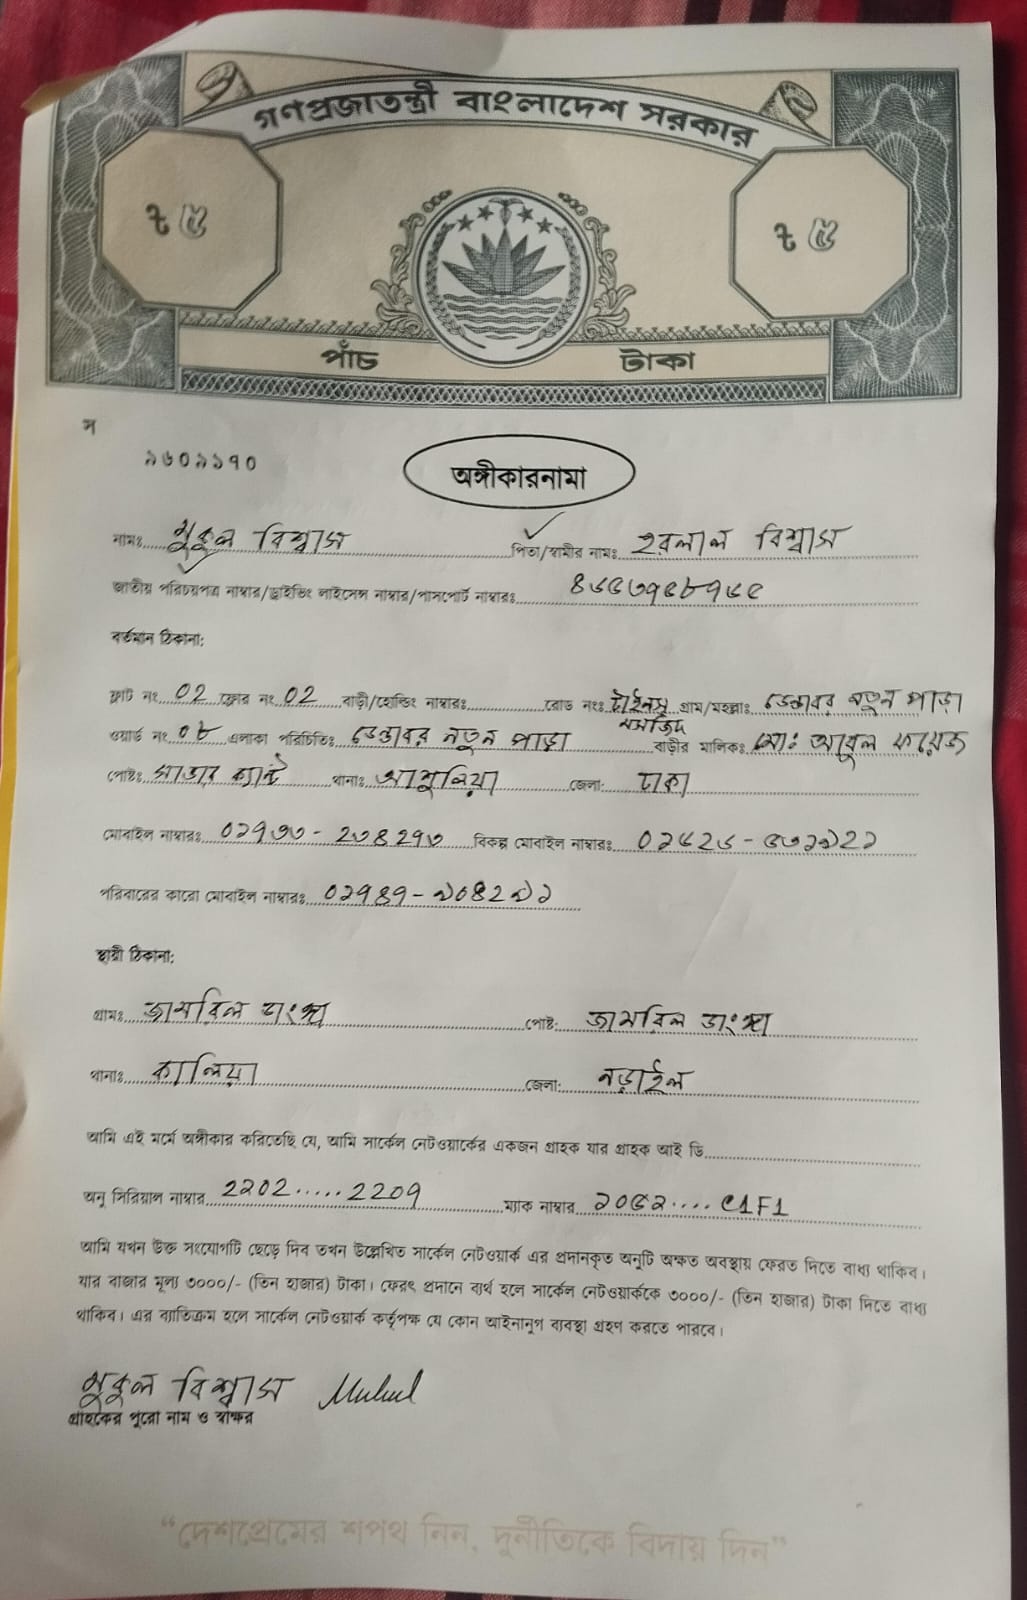 গণপ্রজাতন্ত্রী বাংলাদেশ সরকার
৳ ৫ ৳ ৫
পাঁচ টাকা
স
৯৬০৯৯৭০
অঙ্গীকারনামা
নামঃ মুকুল বিশ্বাস পিতা/স্বামীর নামঃ হরলাল বিশ্বাস
জাতীয় পরিচয়পত্র নাম্বার/ড্রাইভিং লাইসেন্স নাম্বার/পাসপোর্ট নাম্বারঃ
বর্তমান ঠিকানা:
ফ্লাট নং 02 ফ্লোর নং 02 বাড়ী/হোল্ডিং নাম্বারঃ রোড নংঃ মসজিদ গ্রাম/মহল্লাঃ ডেন্ডাবর নতুন পাড়া
ওয়ার্ড নং ০৮ এলাকা পরিচিতিঃ ডেন্ডাবর নতুন পাড়া বাড়ীর মালিকঃ মোঃ আবুল ফয়েজ
পোষ্টঃ সাভার ক্যান্ট থানাঃ আশুলিয়া জেলা: ঢাকা
মোবাইল নাম্বারঃ বিকল্প মোবাইল নাম্বারঃ
পরিবারের কারো মোবাইল নাম্বারঃ
স্থায়ী ঠিকানা:
গ্রামঃ জামরিল ডাংঙ্গা পোষ্ট: জামরিল ডাংঙ্গা
থানাঃ কালিয়া জেলা: নড়াইল
আমি এই মর্মে অঙ্গীকার করিতেছি যে, আমি সার্কেল নেটওয়ার্কের একজন গ্রাহক যার গ্রাহক আই ডি
অনু সিরিয়াল নাম্বার 2202.....2209 ম্যাক নাম্বার
আমি যখন উক্ত সংযোগটি ছেড়ে দিব তখন উল্লেখিত সার্কেল নেটওয়ার্ক এর প্রদানকৃত অনুটি অক্ষত অবস্থায় ফেরত দিতে বাধ্য থাকিব।
যার বাজার মূল্য ৩০০০/- (তিন হাজার) টাকা। ফেরৎ প্রদানে ব্যর্থ হলে সার্কেল নেটওয়ার্ককে ৩০০০/- (তিন হাজার) টাকা দিতে বাধ্য
থাকিব। এর ব্যাতিক্রম হলে সার্কেল নেটওয়ার্ক কর্তৃপক্ষ যে কোন আইনানুগ ব্যবস্থা গ্রহণ করতে পারবে।
মুকুল বিশ্বাস Mukul
গ্রাহকের পুরো নাম ও স্বাক্ষর
“দেশপ্রেমের শপথ নিন, দুর্নীতিকে বিদায় দিন”